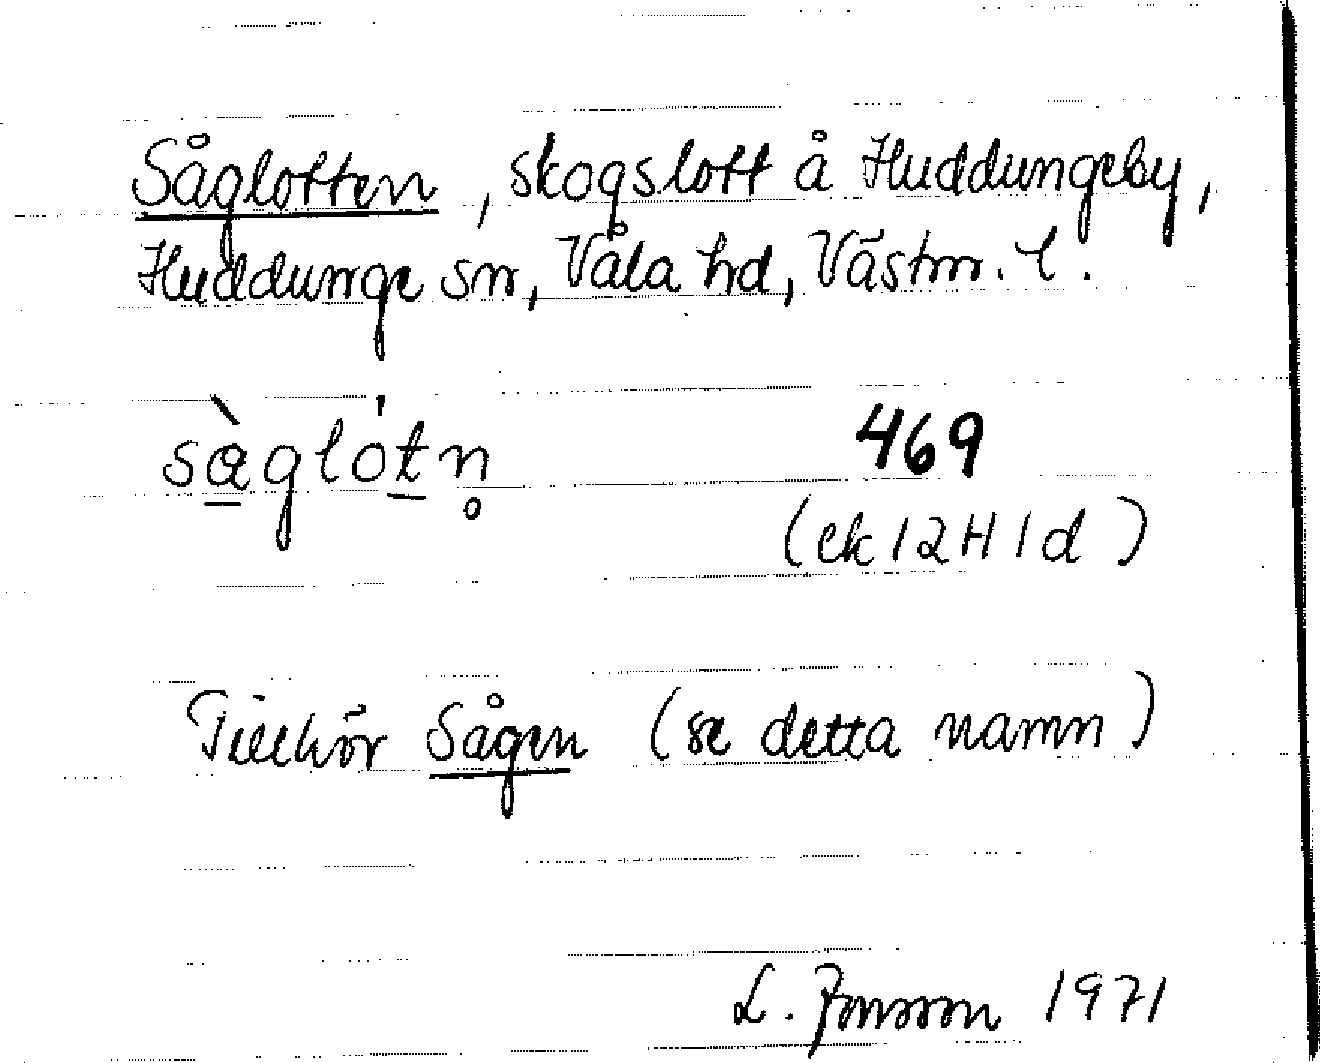 Såglotten, skogslott å Huddungeby,
Huddunge sn, Våla hd, Västm. l.
sàglótn̥ 469
(ek 12H 1d)
Tillhör Sågen (se detta namn)
L. Jonsson 1971